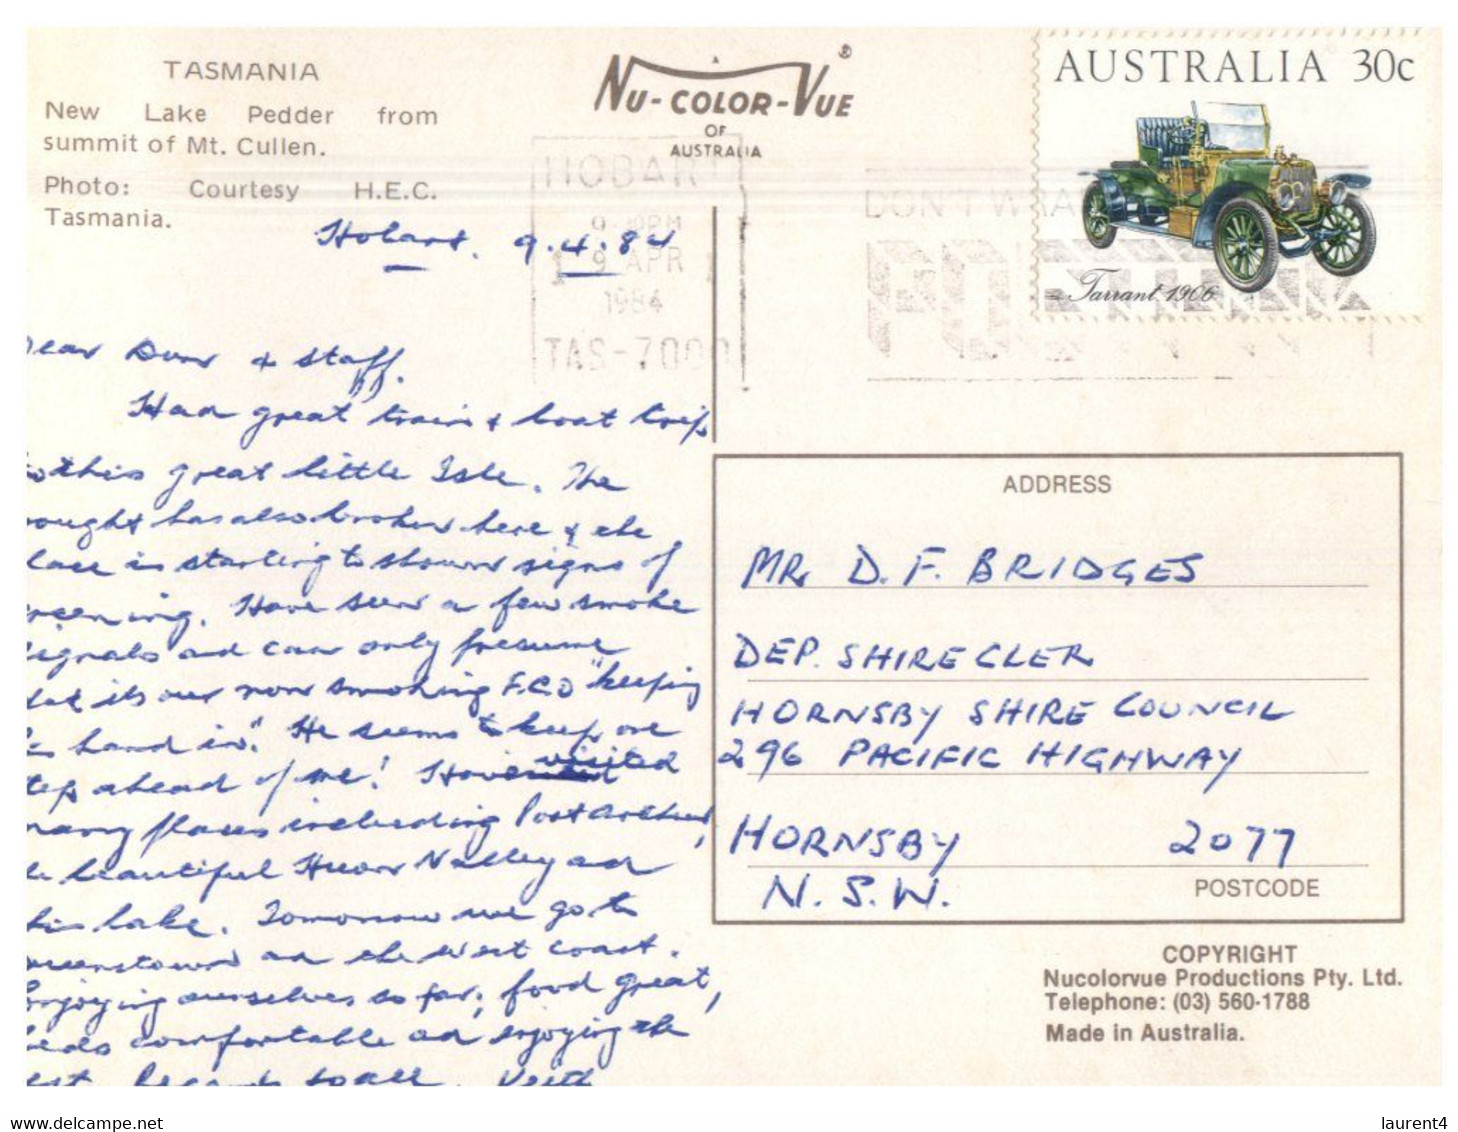 TASMANIA
New Lake Pedder from
summit of Mt. Cullen.
Photo: Courtesy H.E.C.
Tasmania.
A
NU-COLOR-VUE ®
OF
AUSTRALIA
AUSTRALIA 30c
Tarrant 1906
HOBART
9 APR
1984
TAS-7000
DON'T
Hobart. 9.4.84
& Staff,
Had great train & boat trip
this great little Isle. The
has also broken here & the
is starting to show signs of
Have seen a few smoke
and can only presume
its our non smoking F.C.O "keeping
hand in". He seems to keep one
ahead of me! Have visited
places including Port Arthur,
beautiful Huon Valley and
lake. Tomorrow we go to
on the West Coast.
ourselves so far, food great,
comfortable and enjoying the
to all. Keith
ADDRESS
MR D. F. BRIDGES
DEP. SHIRE CLER
HORNSBY SHIRE COUNCIL
296 PACIFIC HIGHWAY
HORNSBY 2077
N.S.W.
POSTCODE
COPYRIGHT
Nucolorvue Productions Pty. Ltd.
Telephone: (03) 560-1788
Made in Australia.
www.delcampe.net
laurent4